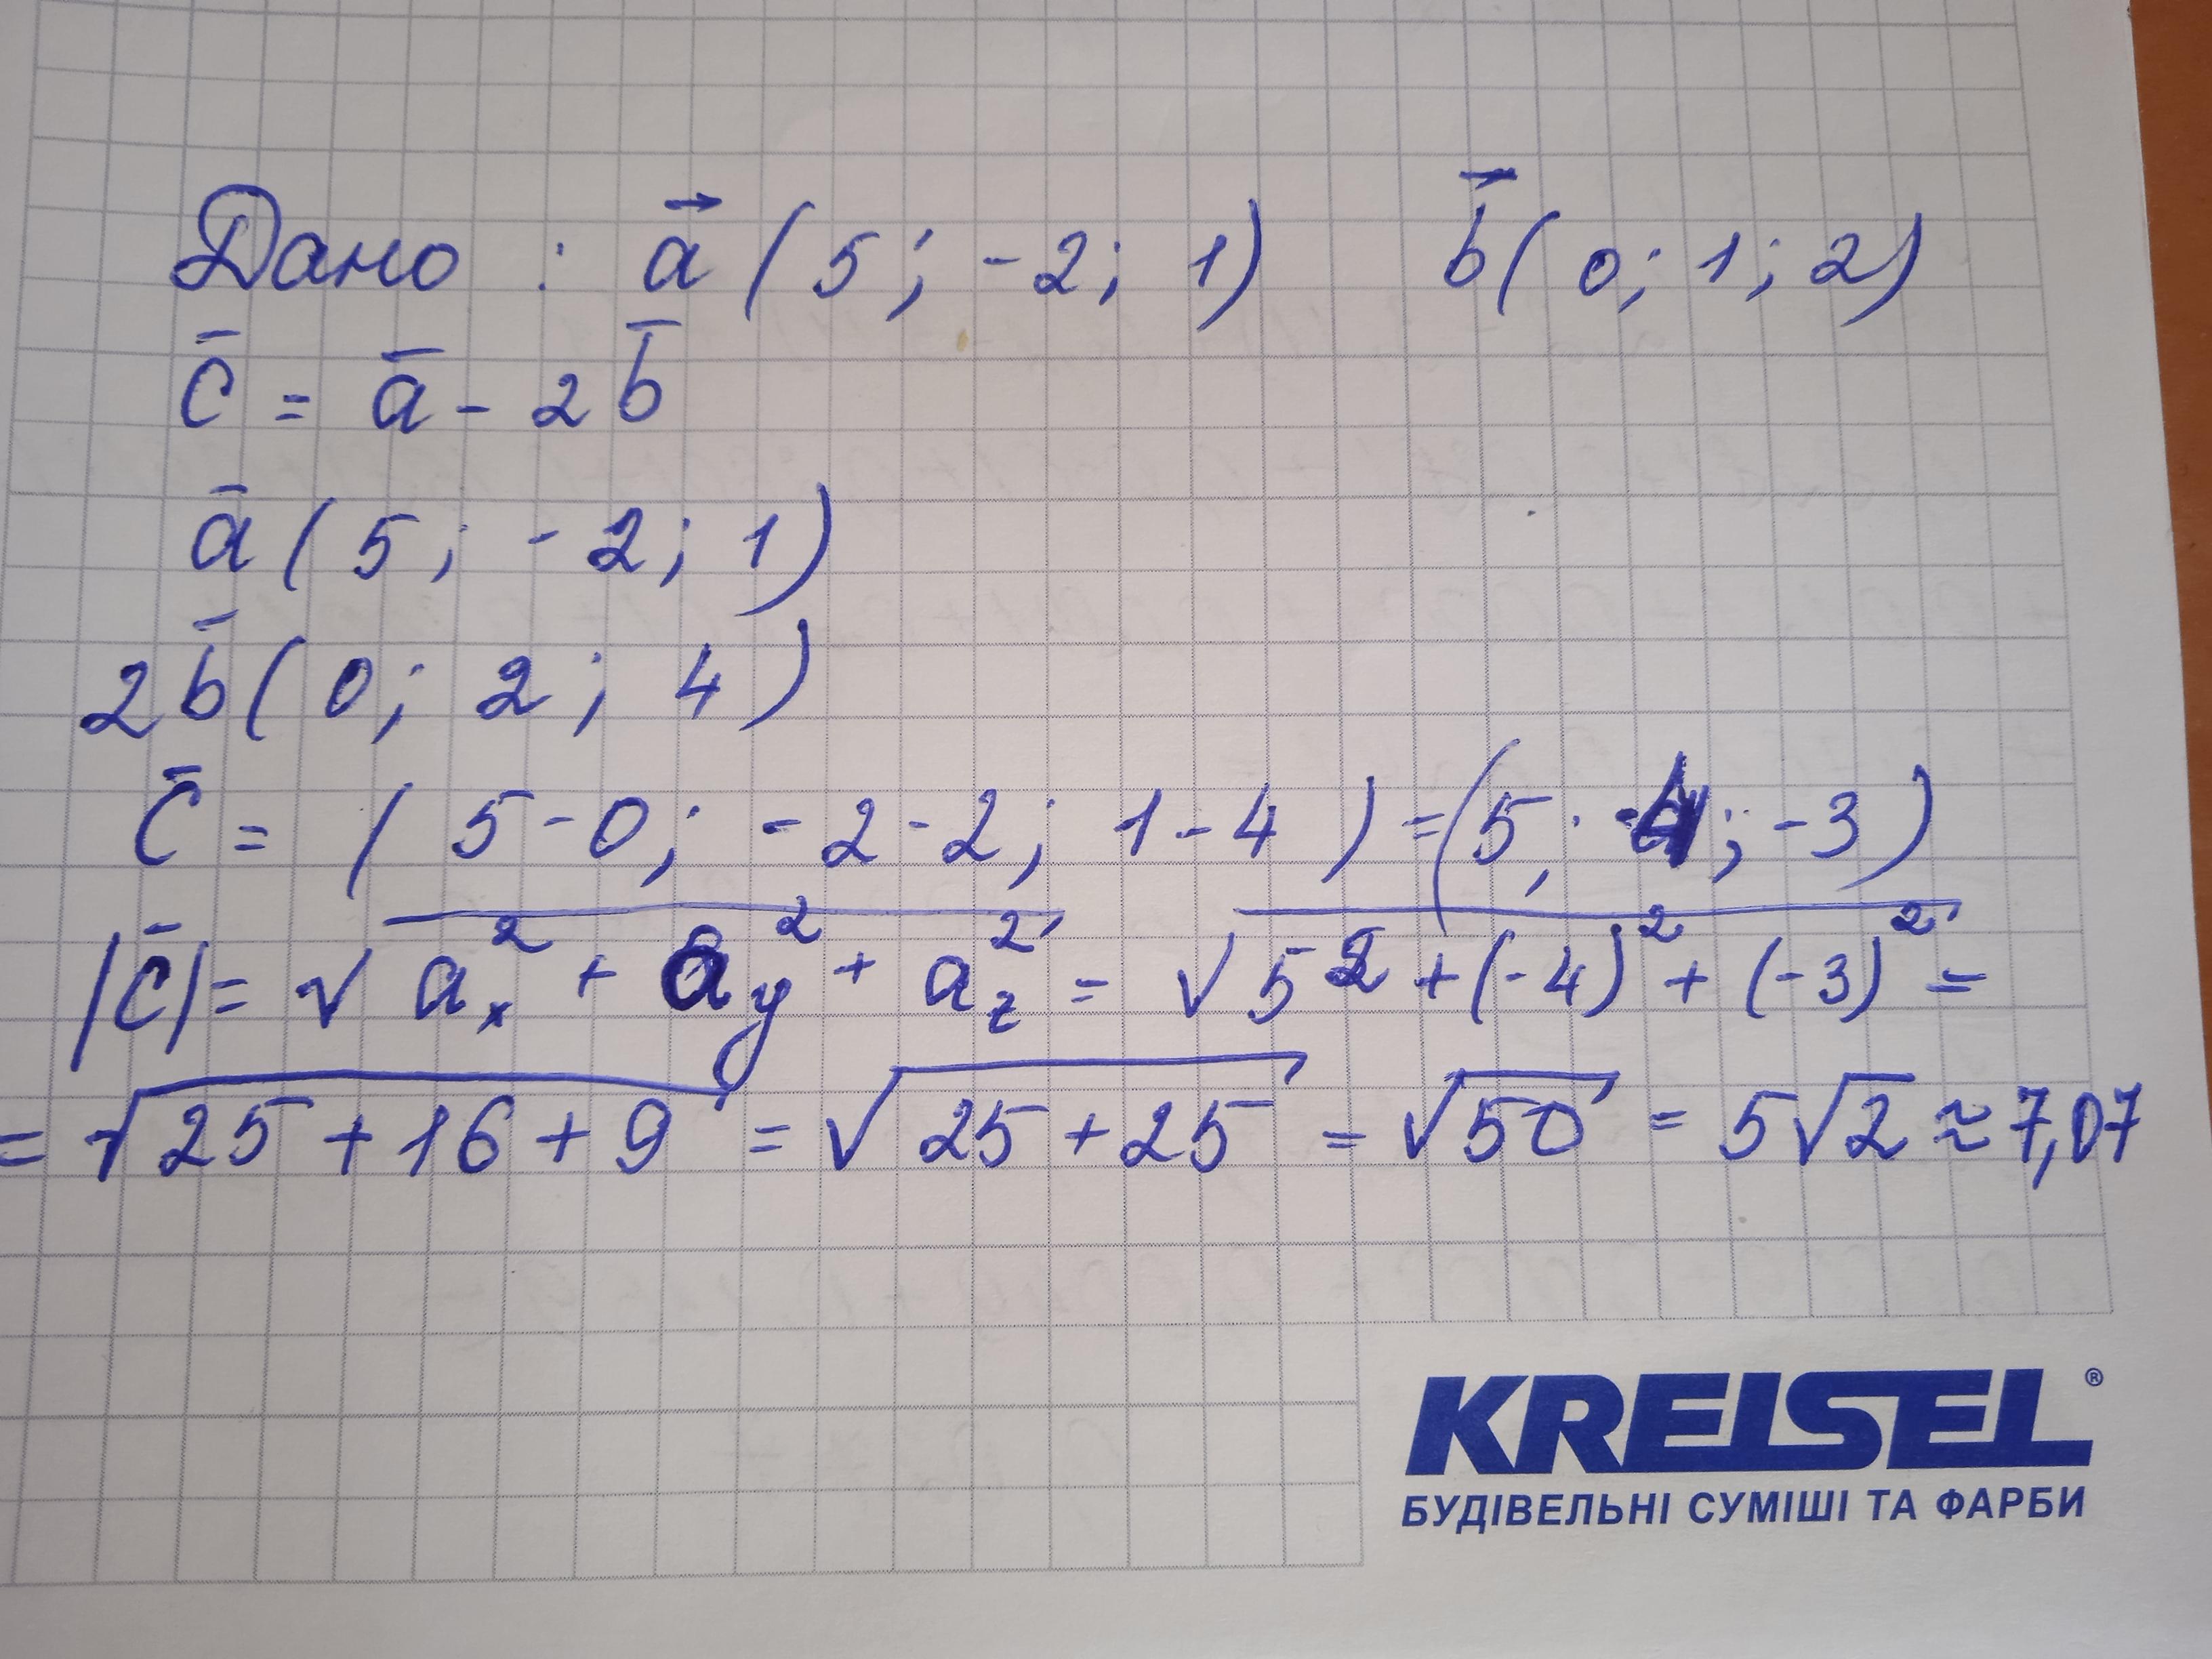 Дано : a⃗ ( 5 ; -2 ; 1 ) b⃗ ( 0 ; 1 ; 2 )
c̄ = ā - 2 b̄
ā ( 5 ; - 2 ; 1 )
2 b̄ ( 0 ; 2 ; 4 )
c̄ = ( 5 - 0 ; - 2 - 2 ; 1 - 4 ) = ( 5 ; -4 ; -3 )
|c̄| = √(aₓ² + a_y² + a_z²) = √(5² + (-4)² + (-3)²) =
= √(25 + 16 + 9) = √(25 + 25) = √50 = 5√2 ≈ 7,07
KREISEL®
БУДІВЕЛЬНІ СУМІШІ ТА ФАРБИ